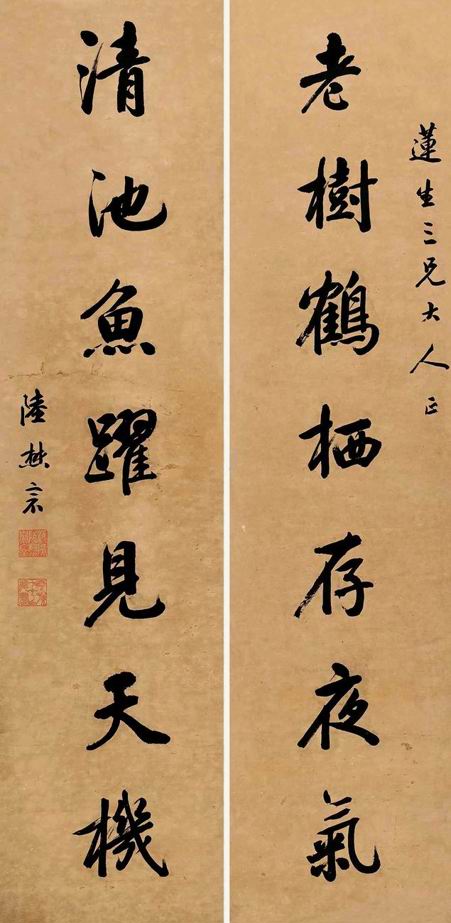 蓮生三兄大人正
老樹鶴栖存夜氣
清池魚躍見天機
陸懋宗